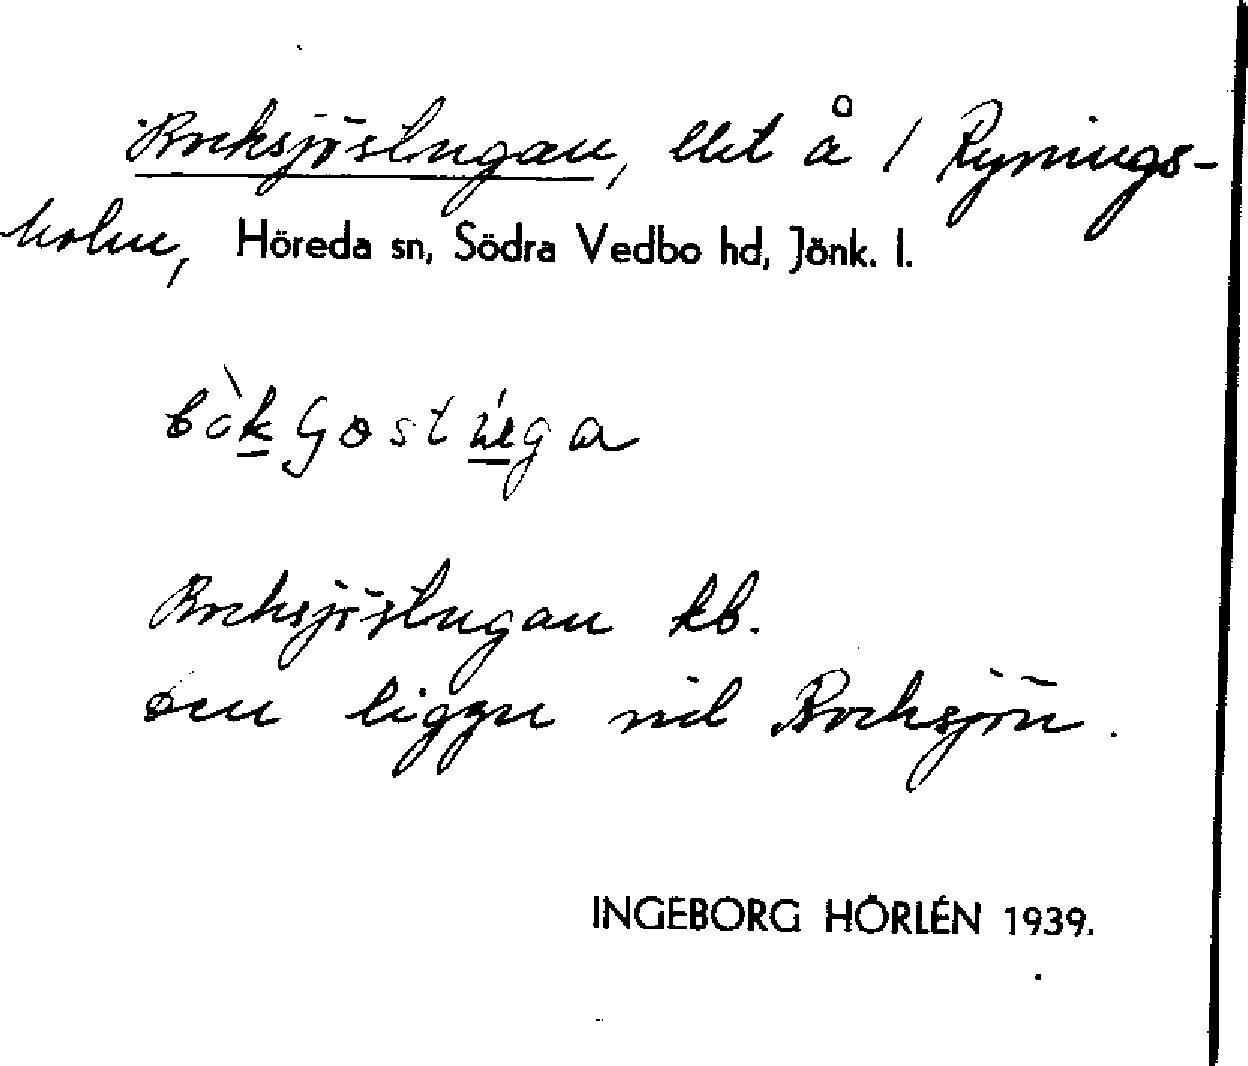 Bocksjöstugan, lht å / Rynings-
holm, Höreda sn, Södra Vedbo hd, Jönk. l.
Bocksjöstugan kb.
Den ligger vid Bocksjön.
INGEBORG HÖRLÉN 1939.